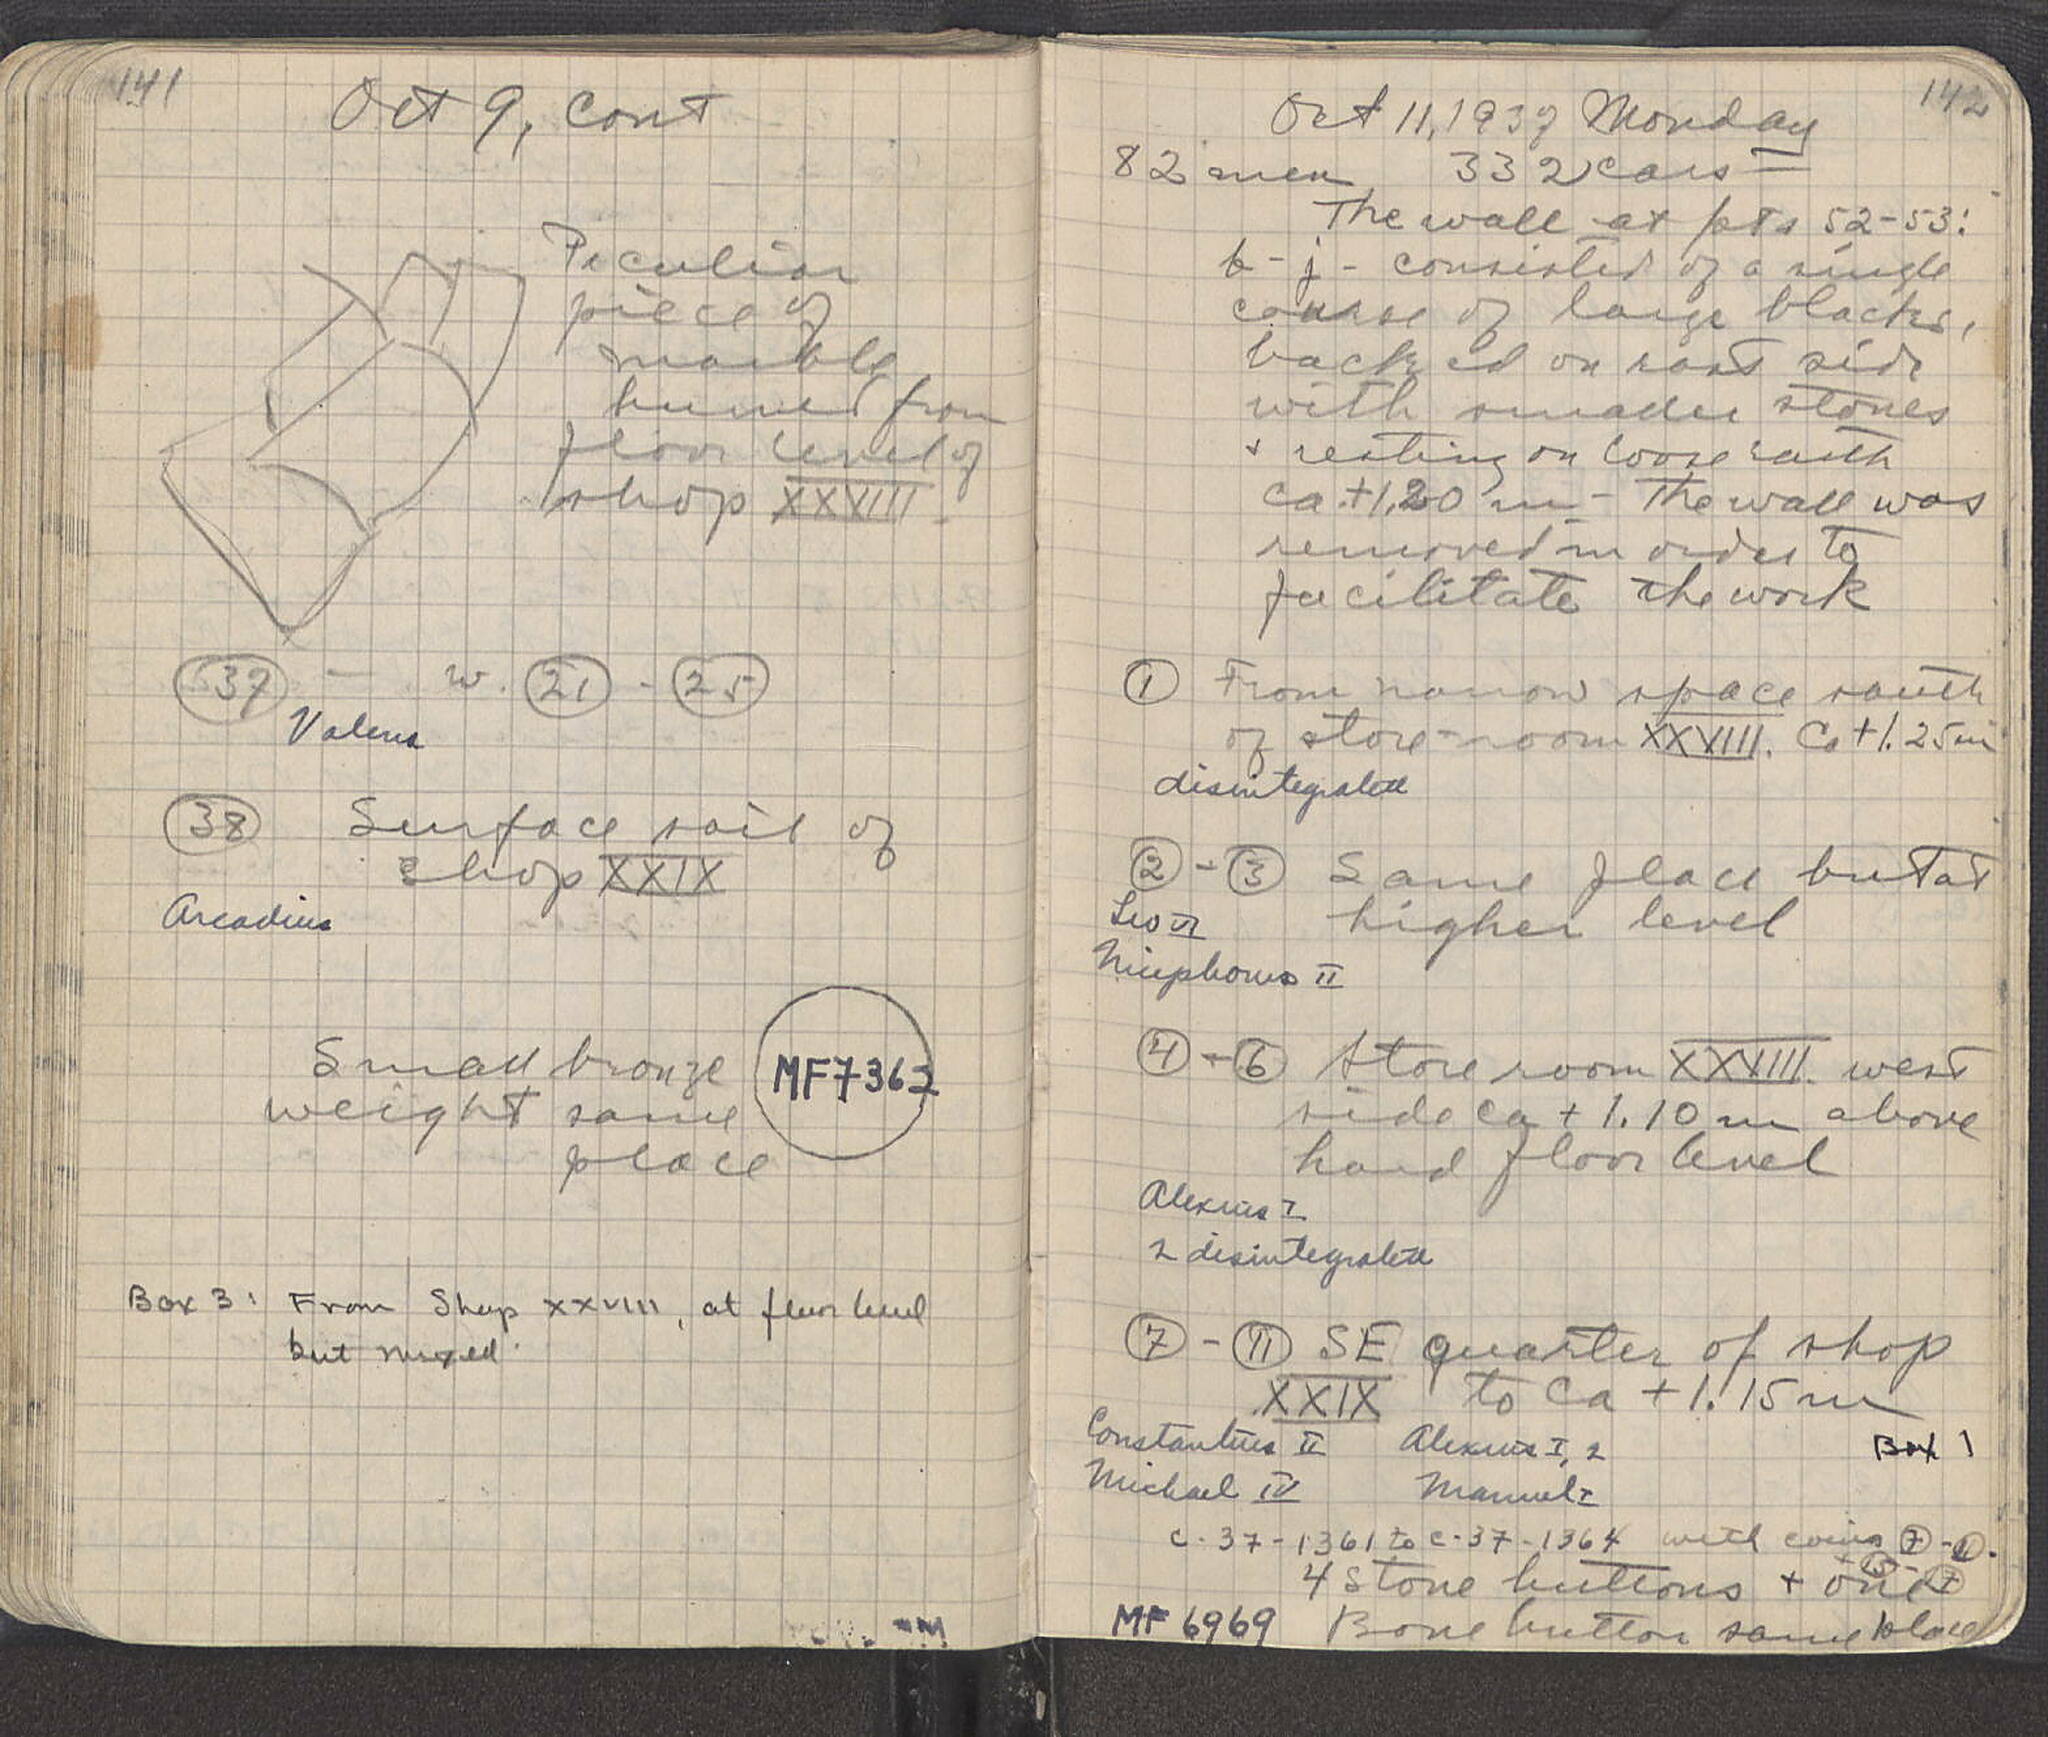 141
Oct 9, cont
Peculiar
piece of
marble
burned from
floor level of
shop XXVIII.
37 — w. 21 - 25
Valens
38 Surface soil of
shop XXIX
Arcadius
Small bronze
weight same
place
MF7362
Box 3: From Shop XXVIII, at floor level
but mixed.
142
Oct 11, 1937 Monday
82 men 332 cars
The wall at pts 52-53:
b - j - consisted of a single
course of large blocks,
backed on east side
with smaller stones
+ resting on loose earth
ca. +1.20 m - The wall was
removed in order to
facilitate the work
1 From narrow space south
of store-room XXVIII. Ca +1.25m
disintegrated
2 - 3 Same place but at
higher level
Leo VI
Nicephorus II
4 - 6 Store room XXVIII. west
side ca + 1.10 m above
hard floor level
Alexius I
2 disintegrated
7 - 11 SE quarter of shop
XXIX to ca + 1.15 m
Constantius II Alexius I, 2 Box 1
Michael IV Manuel I
C-37-1361 to C-37-1364 with coins 7 - 11.
15 - 17
4 stone buttons + one
MF 6969 Bone button same place